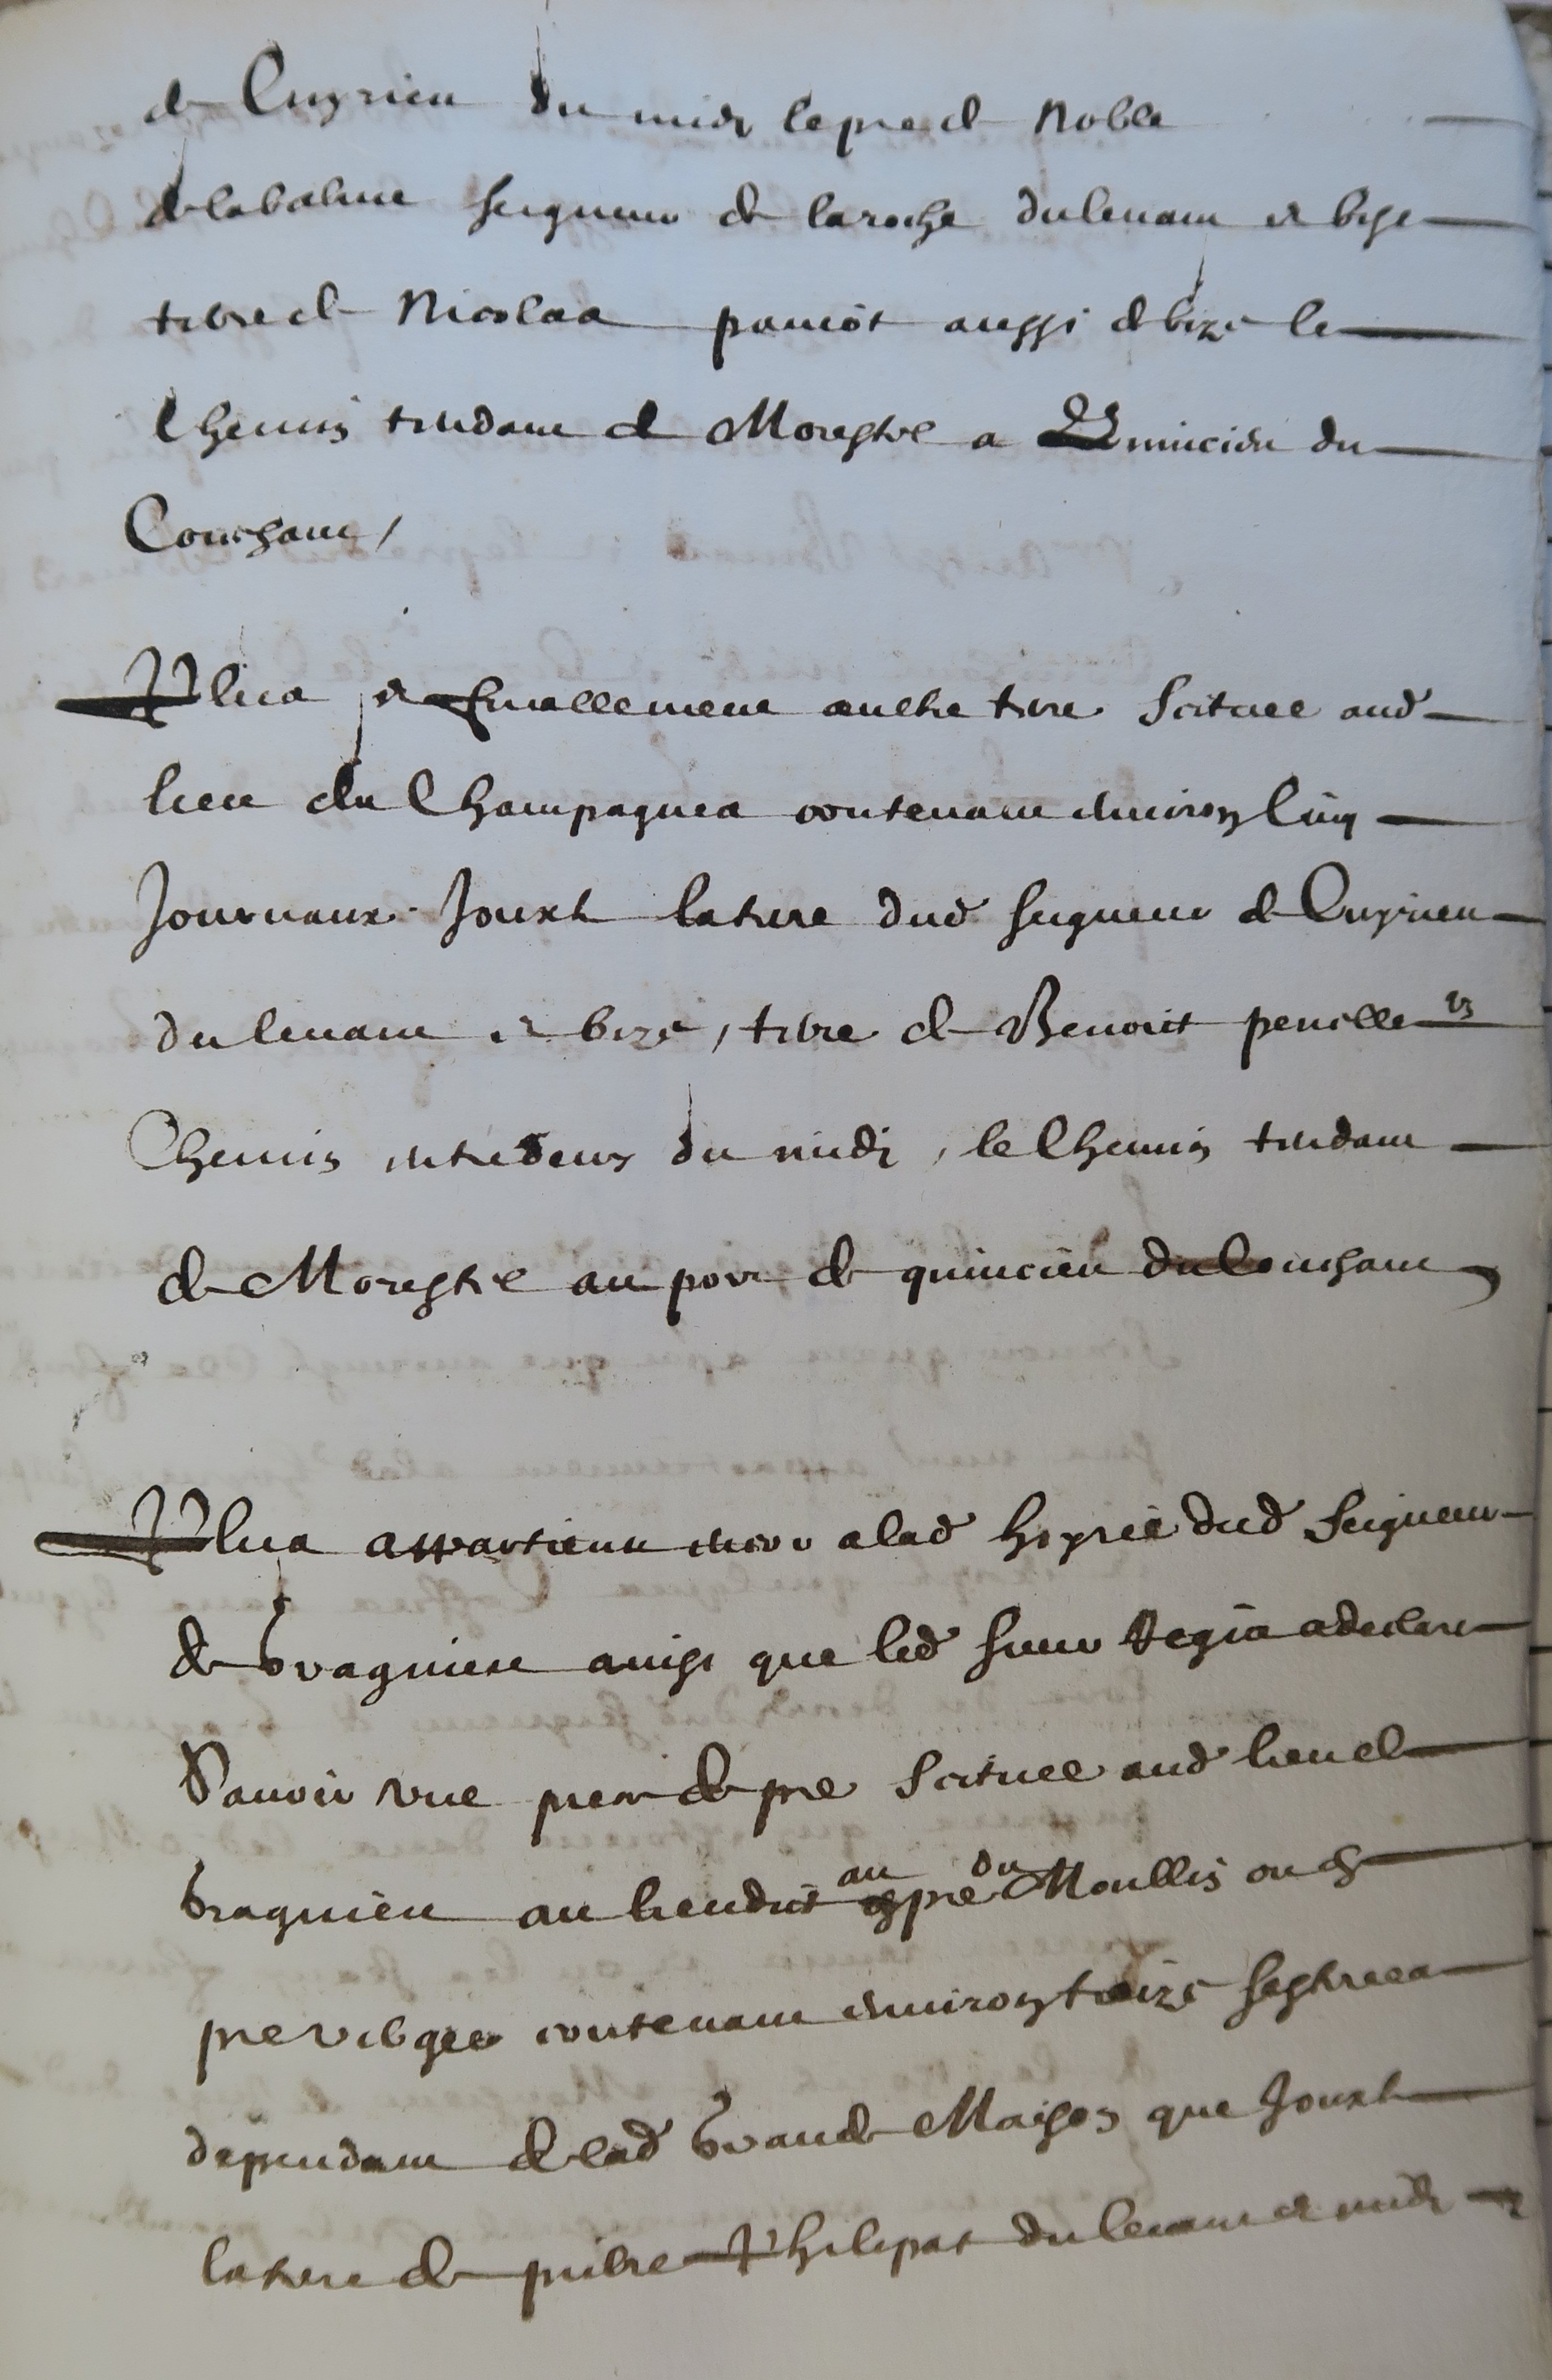 de Cuyrieu du midy le pre de Noble
de la balme seigneur de la roche du levant et bise
terre de Nicolas pauiot aussi de bize le
Chemin tendant de Morestel a Quincieu du
Couchant /
Plus et finallement aultre terre scituee aud
lieu du Champagnes contenant environ cinq
Journaux Jouxte la terre dud seigneur de Cuyrieu
du levant et bize, terre de Benoict penelle un
Chemin entredeux du midi, le Chemin tendant
de Morestel au port de quincieu du Couchant
Plus appartient encor a lad hoyrie dud Seigneur
de bragnieu ainsi que led sieur a declare
Sauoir une piece de pre scituee aud lieu de
bragnieu au lieu dict au pre du Moullin ou de
pre contenant environ treize sestrees
dependant de lad Grande Maison que Jouxte
la terre de pierre Philipat du levant et midy